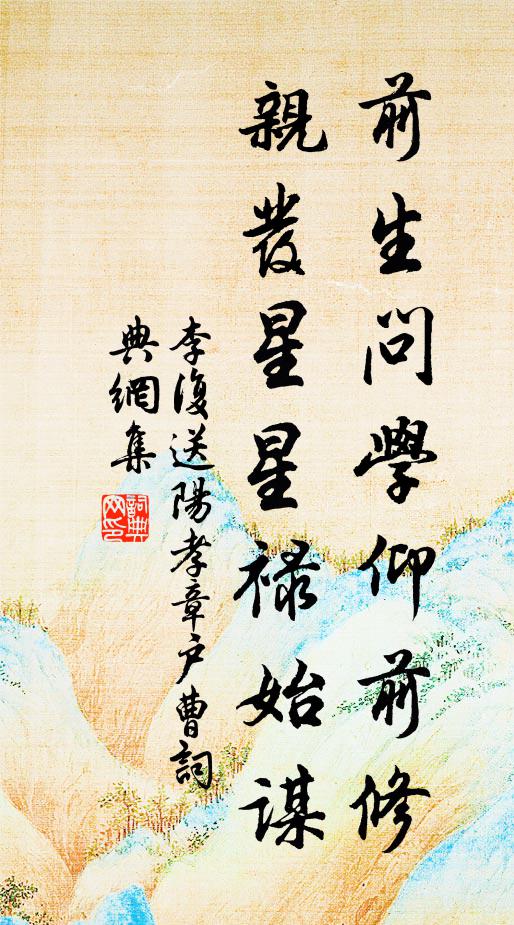 前生問學仰前修
親發星星祿始謀
李復送陽孝章户曹詞
典網集
詞典網印